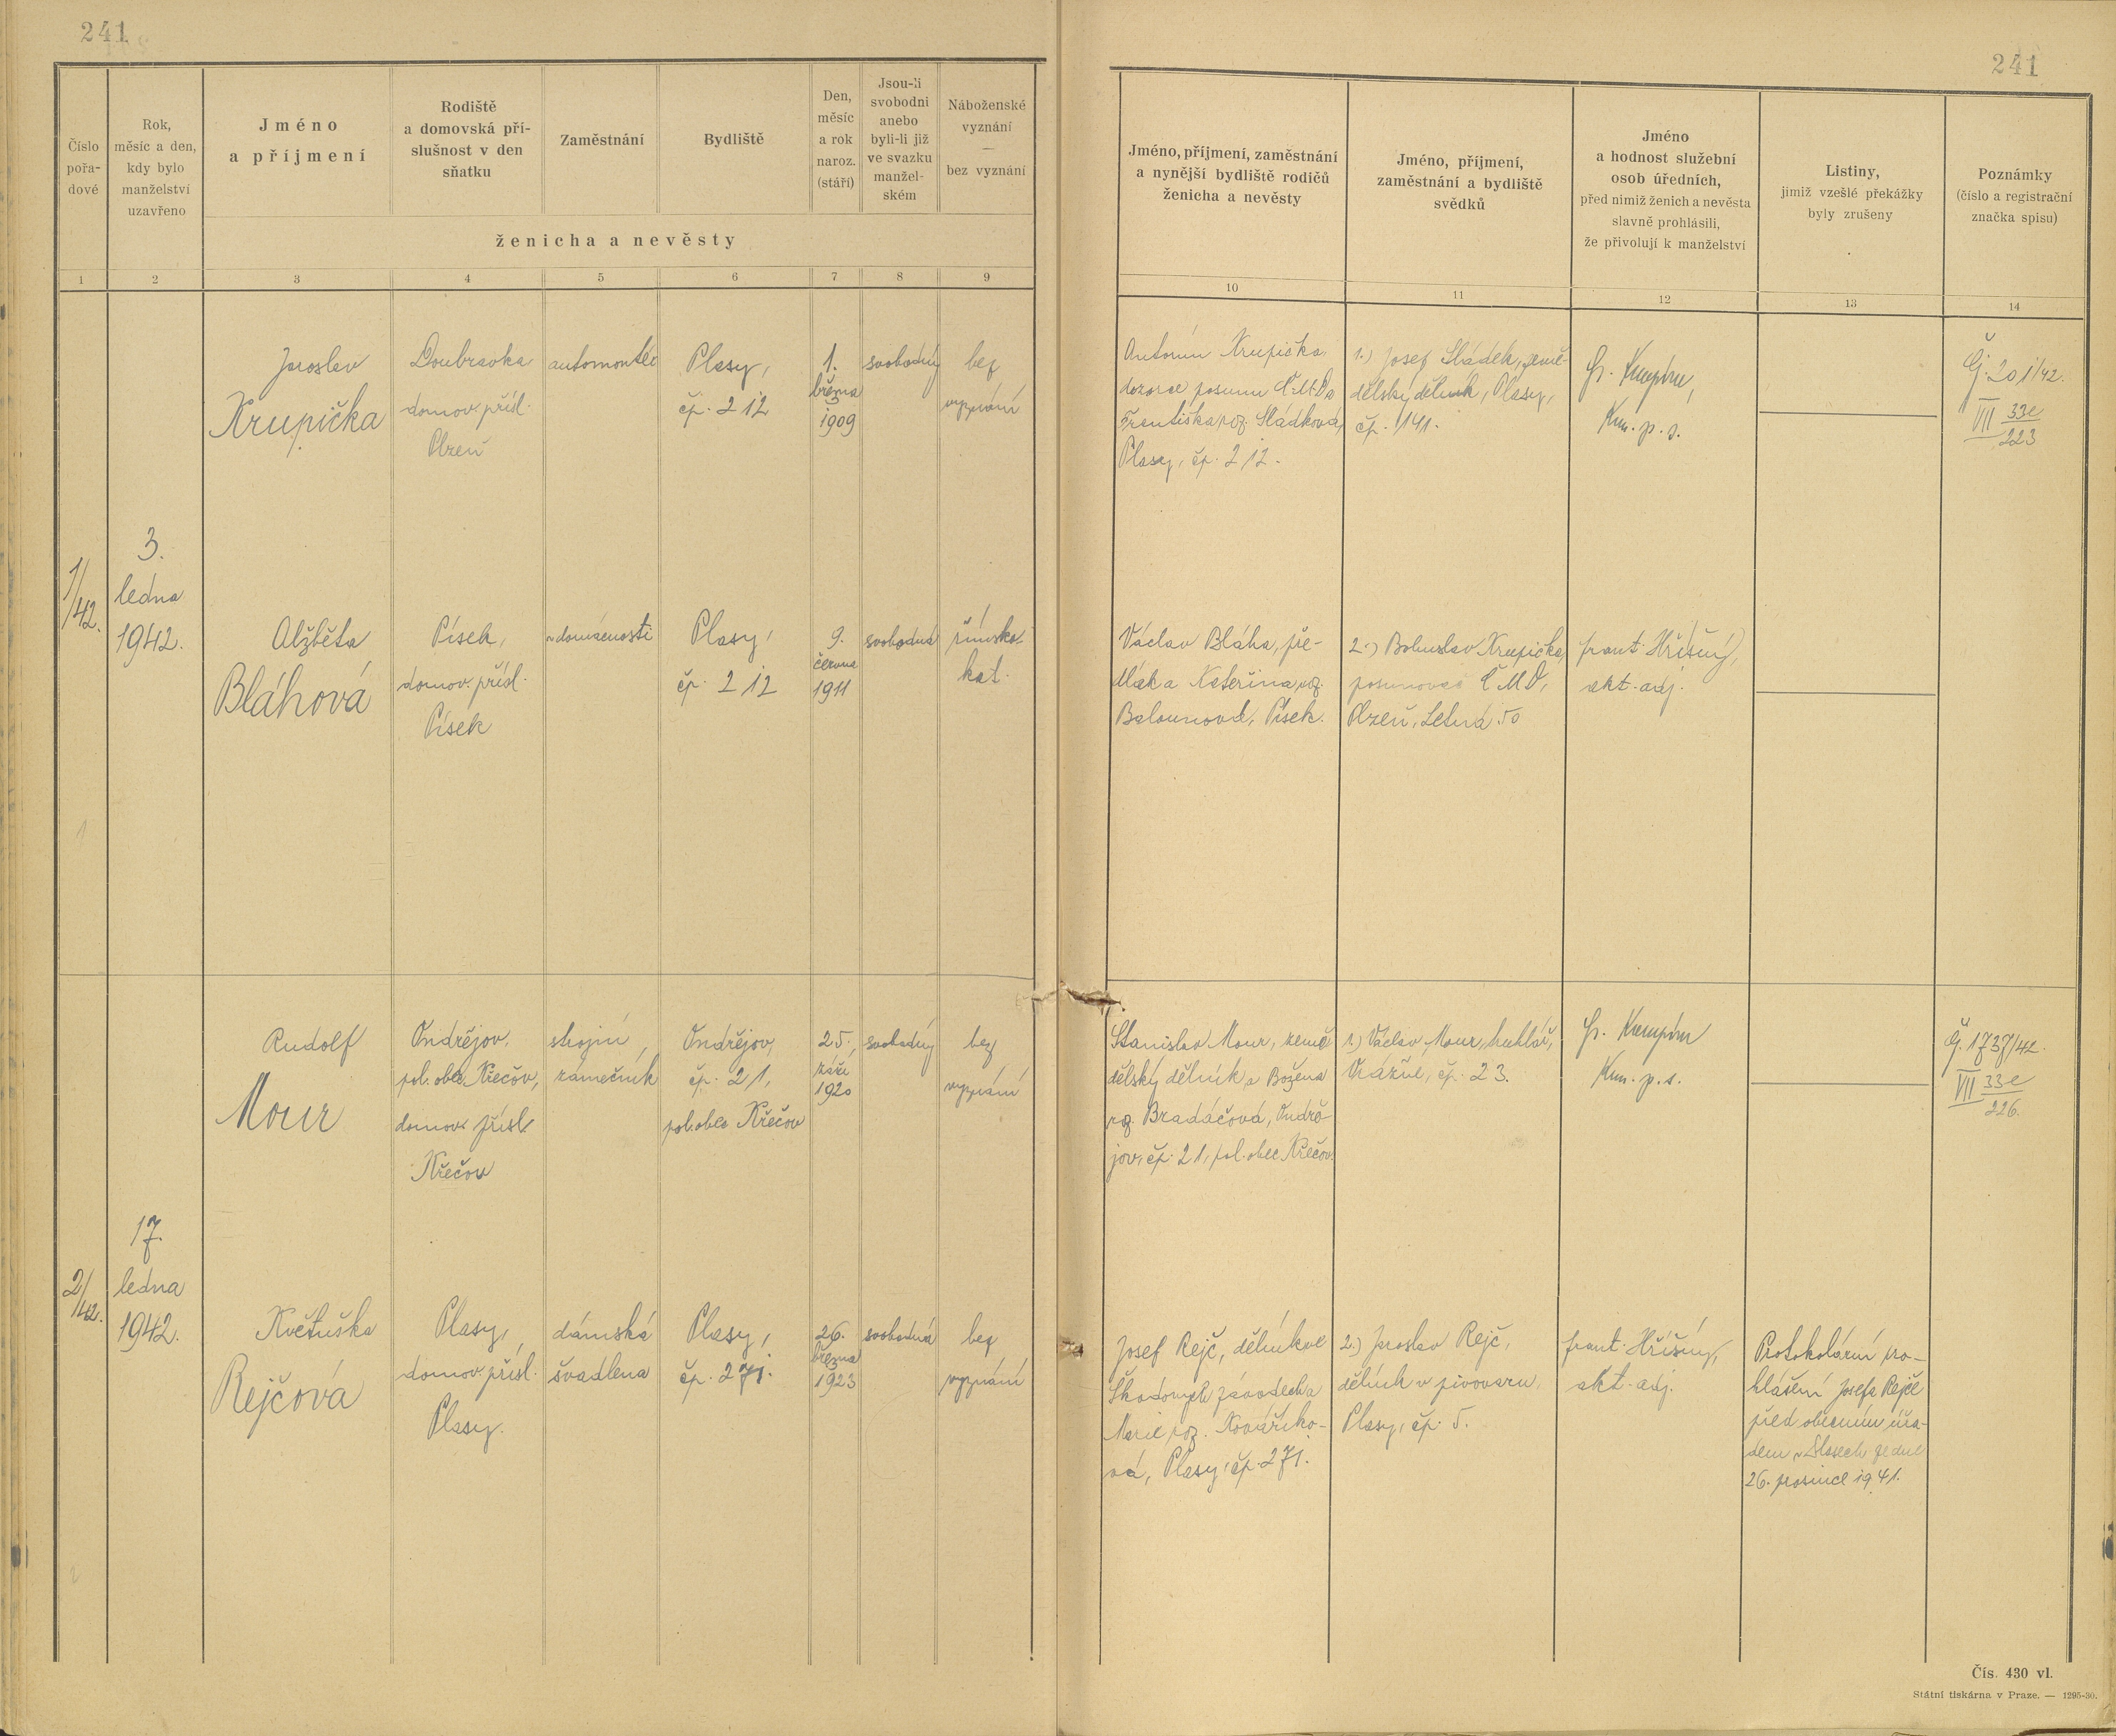 241
241
Číslo
pořa-
dové
Rok,
měsíc a den,
kdy bylo
manželství
uzavřeno
Jméno
a příjmení
Rodiště
a domovská pří-
slušnost v den
sňatku
Zaměstnání
Bydliště
Den,
měsíc
a rok
naroz.
(stáří)
Jsou-li
svobodni
anebo
byli-li již
ve svazku
manžel-
ském
Náboženské
vyznání
—
bez vyznání
ženicha a nevěsty
Jméno, příjmení, zaměstnání
a nynější bydliště rodičů
ženicha a nevěsty
Jméno, příjmení,
zaměstnání a bydliště
svědků
Jméno
a hodnost služební
osob úředních,
před nimiž ženich a nevěsta
slavně prohlásili,
že přivolují k manželství
Listiny,
jimiž vzešlé překážky
byly zrušeny
Poznámky
(číslo a registrační
značka spisu)
1 2 3 4 5 6 7 8 9
10 11 12 13 14
1/42.
3.
ledna
1942.
Jaroslav
Krupička
Doubravka
domov. přísl.
Plzeň
automontér
Plasy,
čp. 212
1.
března
1909
svobodný
bez
vyznání
Antonín Krupička,
dozorce posunu Č.M.D. a
Františka roz. Sládková,
Plasy, čp. 212.
1.) Josef Sládek, země-
dělský dělník, Plasy,
čp. 141.
p. s.
Čj. 201/42.
VII 33e
223
Alžběta
Bláhová
Písek,
domov. přísl.
Písek
v domácnosti
Plasy,
čp. 212
9.
června
1911
svobodná
římsko-
kat.
Václav Bláha, pře-
dlák a Kateřina, roz.
Balounová, Písek.
2.) Bohuslav Krupička,
posunovač ČMD,
Plzeň, Letná 50
frant. Hříšný,
akt. adj.
2/42.
17.
ledna
1942.
Rudolf
Mour
Ondřejov,
pol. obec Křečov,
domov. přísl.
Křečov
strojní
zámečník
Ondřejov,
čp. 21,
pol. obec Křečov
25.
září
1920
svobodný
bez
vyznání
Stanislav Mour, země-
dělský dělník a Božena
roz. Bradáčová, Ondře-
jov, čp. 21, pol. obec Křečov.
1.) Václav Mour, truhlář,
čp. 23.
p. s.
Čj. 1737/42.
VII 33e
226.
Květuška
Rejčová
Plasy,
domov. přísl.
Plasy.
dámská
švadlena
Plasy,
čp. 271.
26.
března
1923
svobodná
bez
vyznání
Josef Rejč, dělník ve
Škodových závodech a
Marie roz. Kovaříko-
vá, Plasy, čp. 271.
2.) Jaroslav Rejč,
dělník v pivovaru,
Plasy, čp. 5.
frant. Hříšný,
akt. adj.
Protokolární pro-
hlášení Josefa Rejče
před obecním úřa-
dem v Plasech ze dne
26. prosince 1941.
Čís. 430 vl.
Státní tiskárna v Praze. — 1295-30.